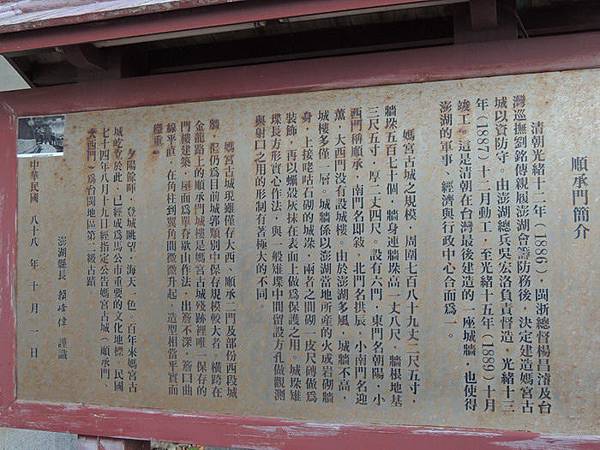 順承門簡介
清朝光緒十二年（1886），閩浙總督楊昌濬及台
灣巡撫劉銘傳親履澎湖會籌防務後，決定建造媽宮古
城以資防守。由澎湖總兵吳宏洛負責督造，光緒十三
年（1887）十二月動工，至光緒十五年（1889）十月
竣工。這是清朝在台灣最後建造的一座城牆，也使得
澎湖的軍事、經濟與行政中心合而為一。
媽宮古城之規模，周圍七百八十九丈二尺五寸，
牆垛五百七十個，牆身連牆垛高一丈八尺，牆根地基
三尺五寸，厚二丈四尺。設有六門，東門名朝陽，小
西門稱順承，南門名即敍，北門名拱辰，小南門名迎
薰，大西門沒有設城樓。由於澎湖多風，城牆不高，
城樓多僅一層。城牆係以澎湖當地所產的火成岩砌牆
身，上接咾咕石砌的城垛，兩者之間砌一皮尺磚做爲
裝飾，再以蠣殼灰抹在表面上做爲保護之用。城垛雉
堞長方形實心作法，與一般雉堞中間留設方孔做觀測
與射口之用的形制有著極大的不同。
媽宮古城現雖僅存大西、順承二門及部份西段城
牆，但仍爲目前城郭類別中保存規模較大者，橫跨在
金龍路上的順承門城樓是媽宮古城殘跡裡唯一保存的
門樓建築，屋面爲單脊歇山作法，出簷不深，簷口曲
線平直，在角柱到翼角間微微升起，造型相當平實而
穩重。
夕陽餘暉，登城眺望，海天一色，百年來媽宮古
城屹立於此，已經成爲馬公市重要的文化地標，民國
七十四年八月十九日經指定公告媽宮古城（順承門、
大西門）爲台閩地區第二級古蹟。
澎湖縣長 賴峰偉 謹識
中華民國 八十八 年 十 月 一 日